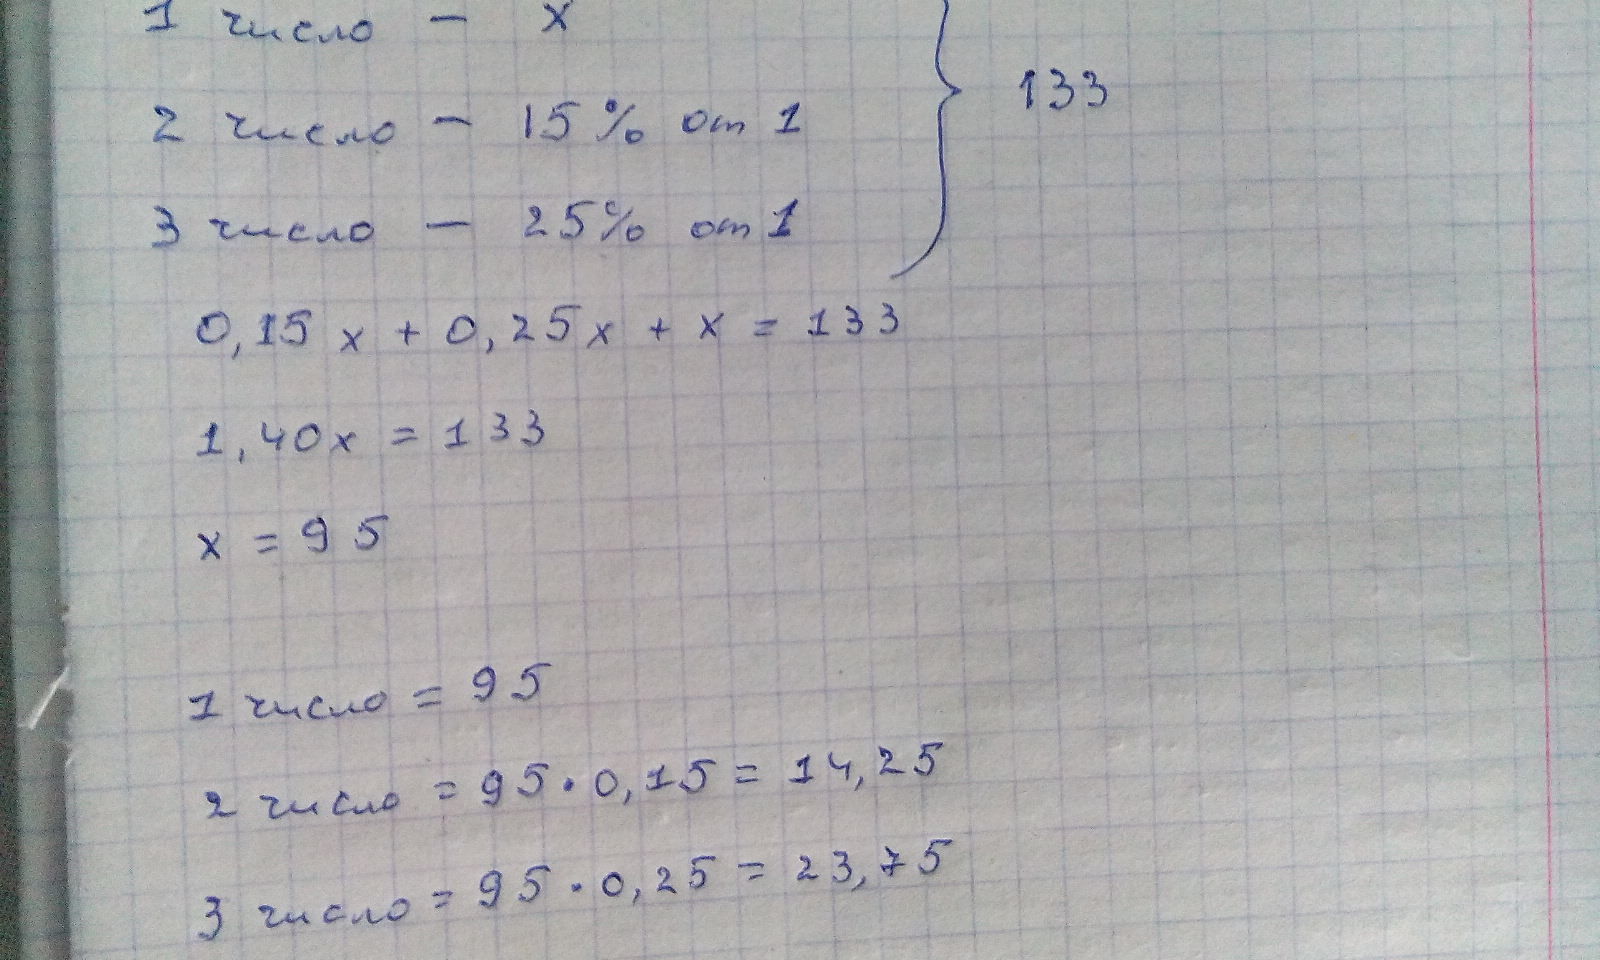 1 число - x
2 число - 15% от 1
3 число - 25% от 1
} 133
0,15x + 0,25x + x = 133
1,40x = 133
x = 95
1 число = 95
2 число = 95·0,15 = 14,25
3 число = 95·0,25 = 23,75